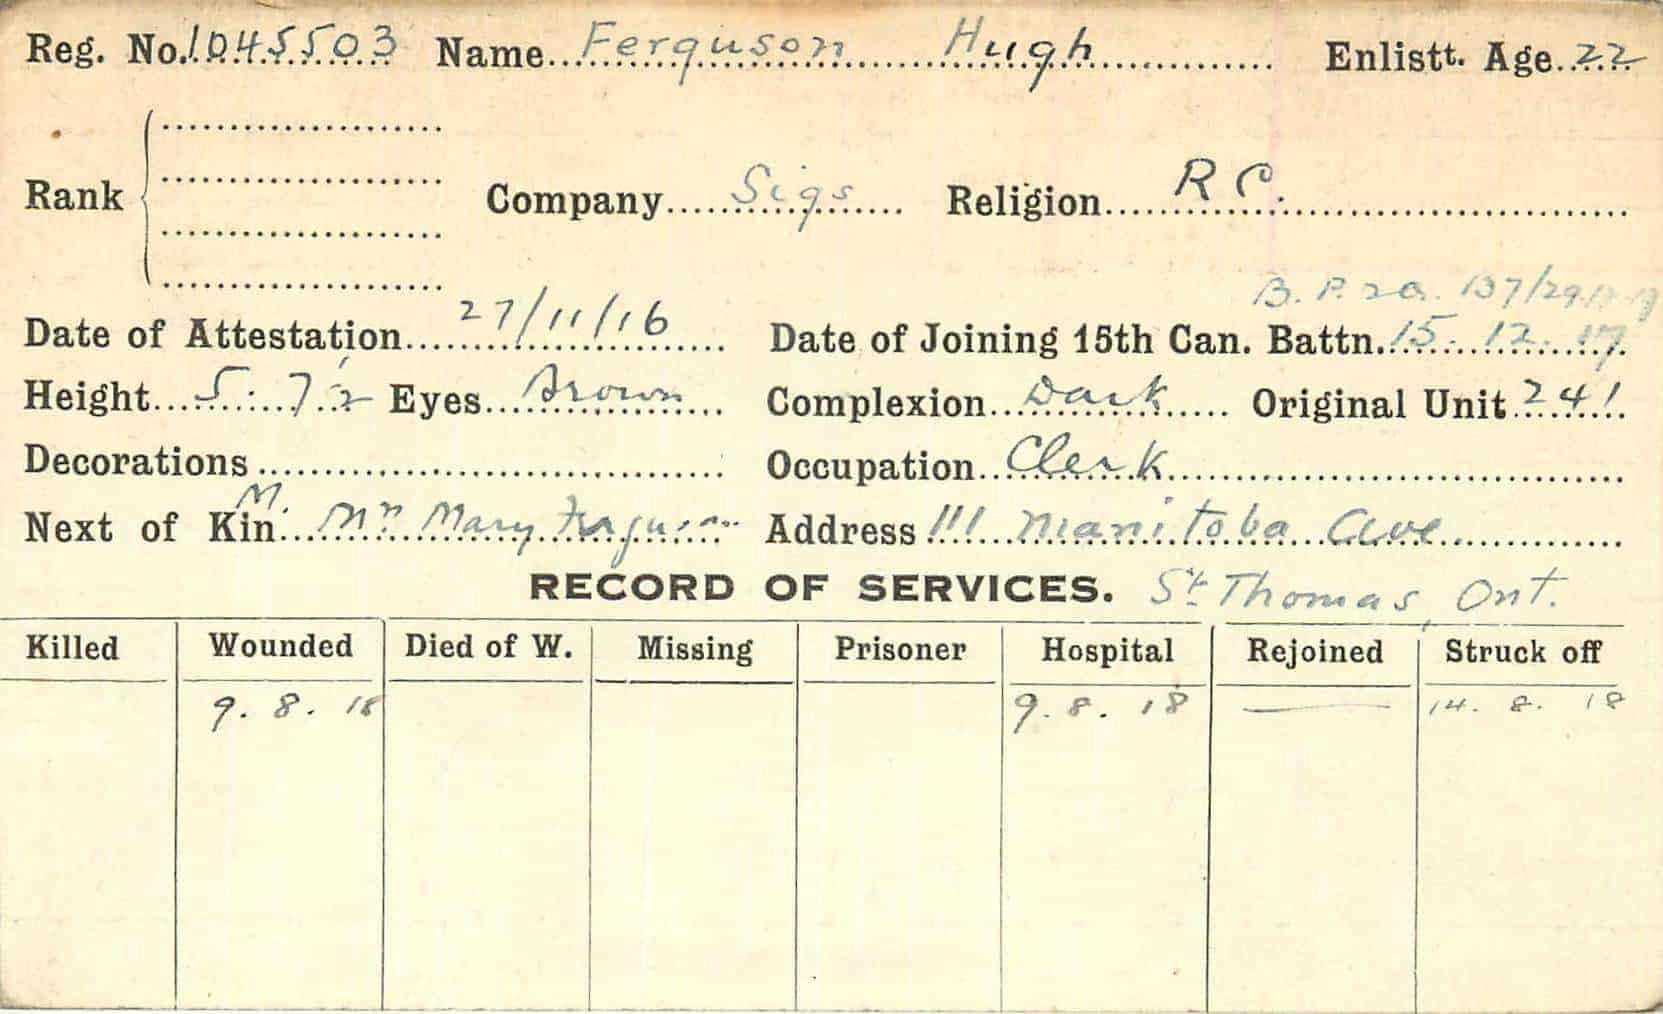 Reg. No. 1045503 Name Ferguson Hugh Enlistt. Age 22
Rank Company Sigs Religion R C.
B. P. 2a. 137/29
Date of Attestation 27/11/16 Date of Joining 15th Can. Battn. 15. 12. 17
Height 5. 7 1/2 Eyes Brown Complexion Dark Original Unit 241
Decorations Occupation Clerk
M.
Next of Kin Mrs Mary Ferguson Address 111 Manitoba Ave
RECORD OF SERVICES. St. Thomas, Ont.
Killed Wounded Died of W. Missing Prisoner Hospital Rejoined Struck off
9. 8. 18 9. 8. 18 — 14. 8. 18